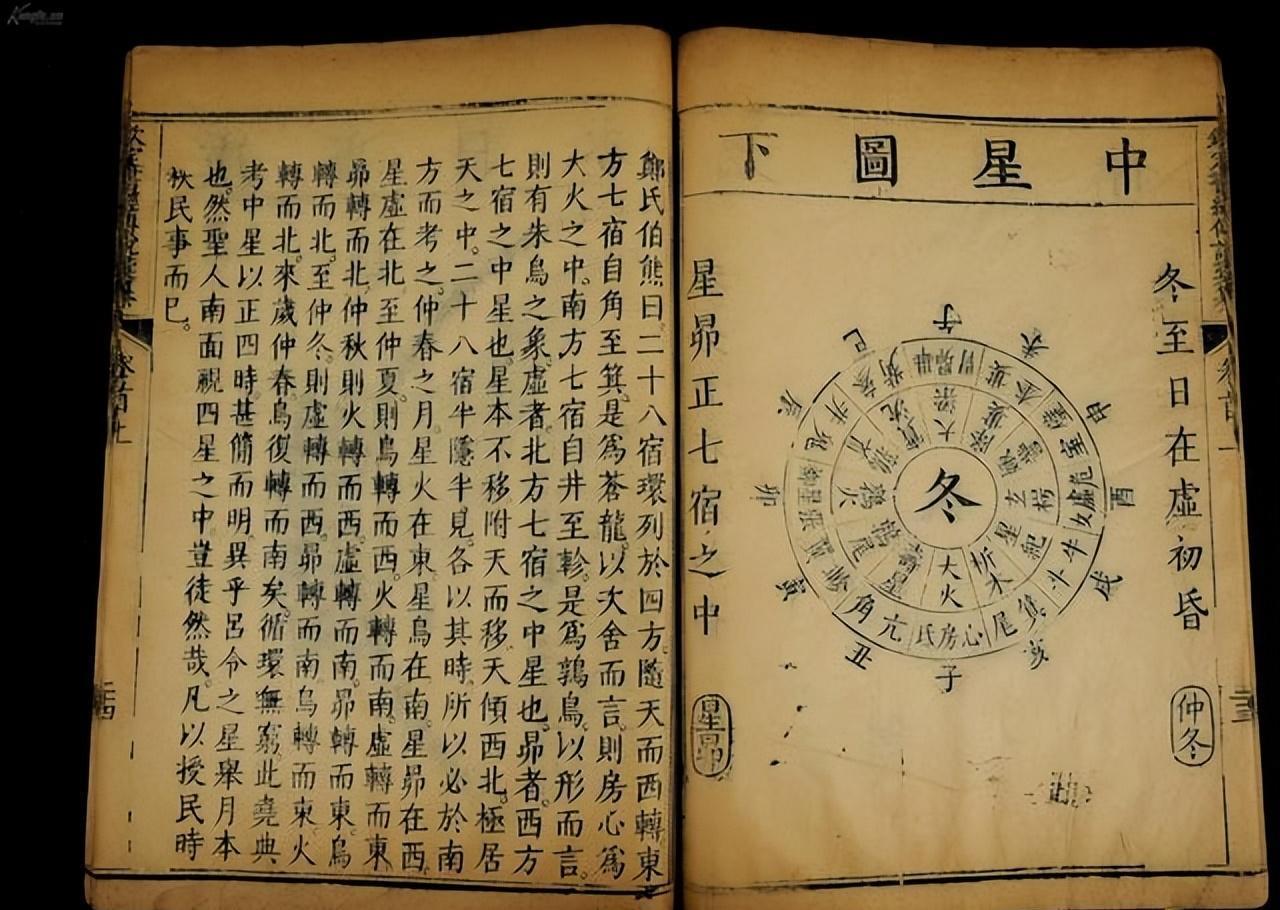 中星圖下
冬至日在虛初昏
仲冬
冬
大火
析木
星紀
玄枵
大梁
鶉火
鶉尾
壽星
氐房心
尾箕
斗牛
女虛危
角亢
井鬼
午
未
申
酉
戌
亥
子
丑
寅
卯
辰
巳
星昴正七宿之中
星昴
二十三
鄭氏伯熊曰二十八宿環列於四方隨天而西轉東
方七宿自角至箕是爲蒼龍以次舍而言則房心爲
大火之中。南方七宿自井至軫是爲鶉鳥。以形而言。
則有朱鳥之象。虛者北方七宿之中星也。昴者西方
七宿之中星也。星本不移附天而移。天傾西北。極居
天之中。二十八宿半隱半見。各以其時。所以必於南
方而考之。仲春之月星火在東。星鳥在南。星昴在西。
星虛在北。至仲夏則鳥轉而西。火轉而南。虛轉而東
昴轉而北。仲秋則火轉而西。虛轉而南。昴轉而東。鳥
轉而北。至仲冬。則虛轉而西。昴轉而南。鳥轉而東。火
轉而北。來歲仲春。鳥復轉而南矣。循環無窮。此堯典
考中星以正四時。甚簡而明。異乎呂令之星舉月本
也。然聖人南面視四星之中。豈徒然哉。凡以授民時
秩民事而已。
二十四